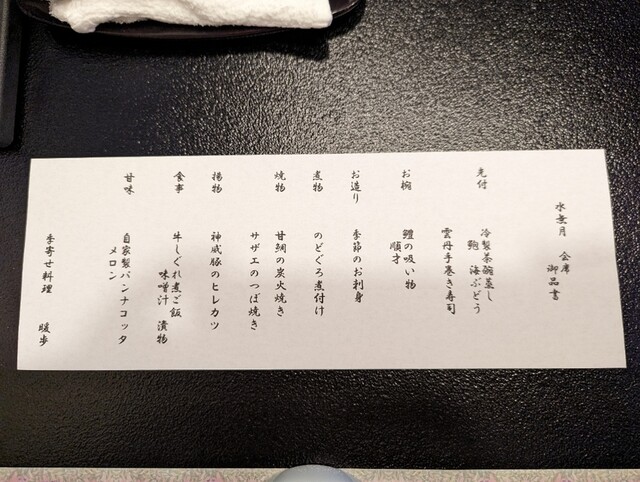 水無月　会席
御品書
先付　冷製茶碗蒸し
鮑　海ぶどう
雲丹手巻き寿司
お椀　鱧の吸い物
順才
お造り　季節のお刺身
煮物　のどぐろ煮付け
焼物　甘鯛の炭火焼き
サザエのつぼ焼き
揚物　神威豚のヒレカツ
食事　牛しぐれ煮ご飯
味噌汁　漬物
甘味　自家製パンナコッタ
メロン
季寄せ料理　暖歩